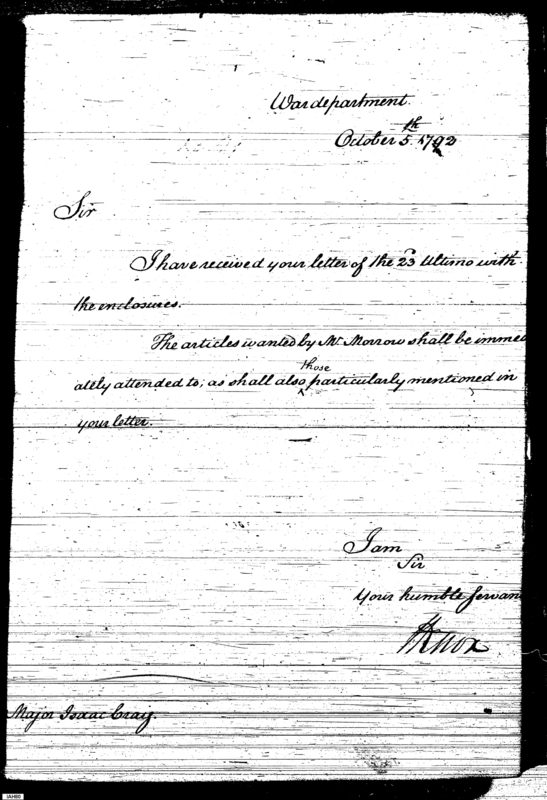 War department.
October 5.th 1792
Sir
I have received your letter of the 23 Ultimo with
the enclosures.
The articles wanted by Mr. Morrow shall be immedi
ately attended to; as shall also those particularly mentioned in
your letter.
I am
Sir
Your humble Servan
HKnox
Major Isaac Craig.
IAHB0